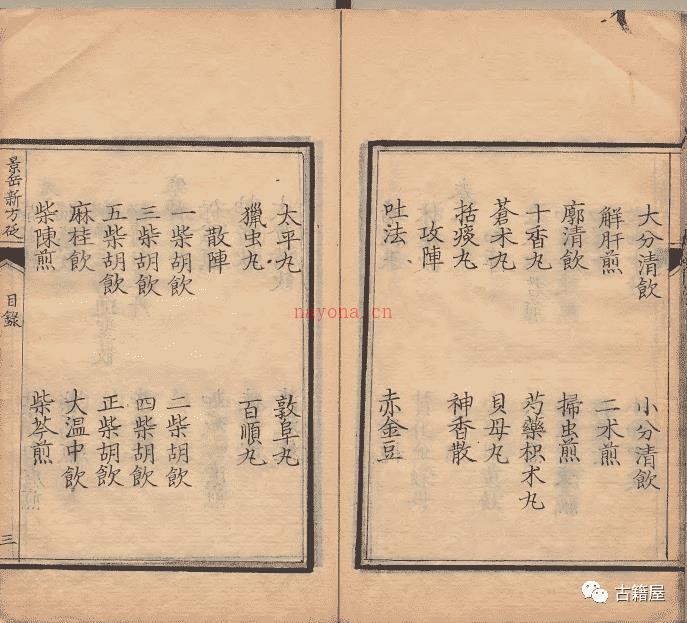 大分清飲 小分清飲
解肝煎 二术煎
廓清飲 掃虫煎
十香丸 芍藥枳术丸
蒼术丸 貝母丸
括痰丸 神香散
攻陣
吐法 赤金豆
太平丸 敦阜丸
獵虫丸 百順丸
散陣
一柴胡飲 二柴胡飲
三柴胡飲 四柴胡飲
五柴胡飲 正柴胡飲
麻桂飲 大温中飲
柴陳煎 柴芩煎
景岳新方砭 目錄 三
nayona.cn
古籍屋